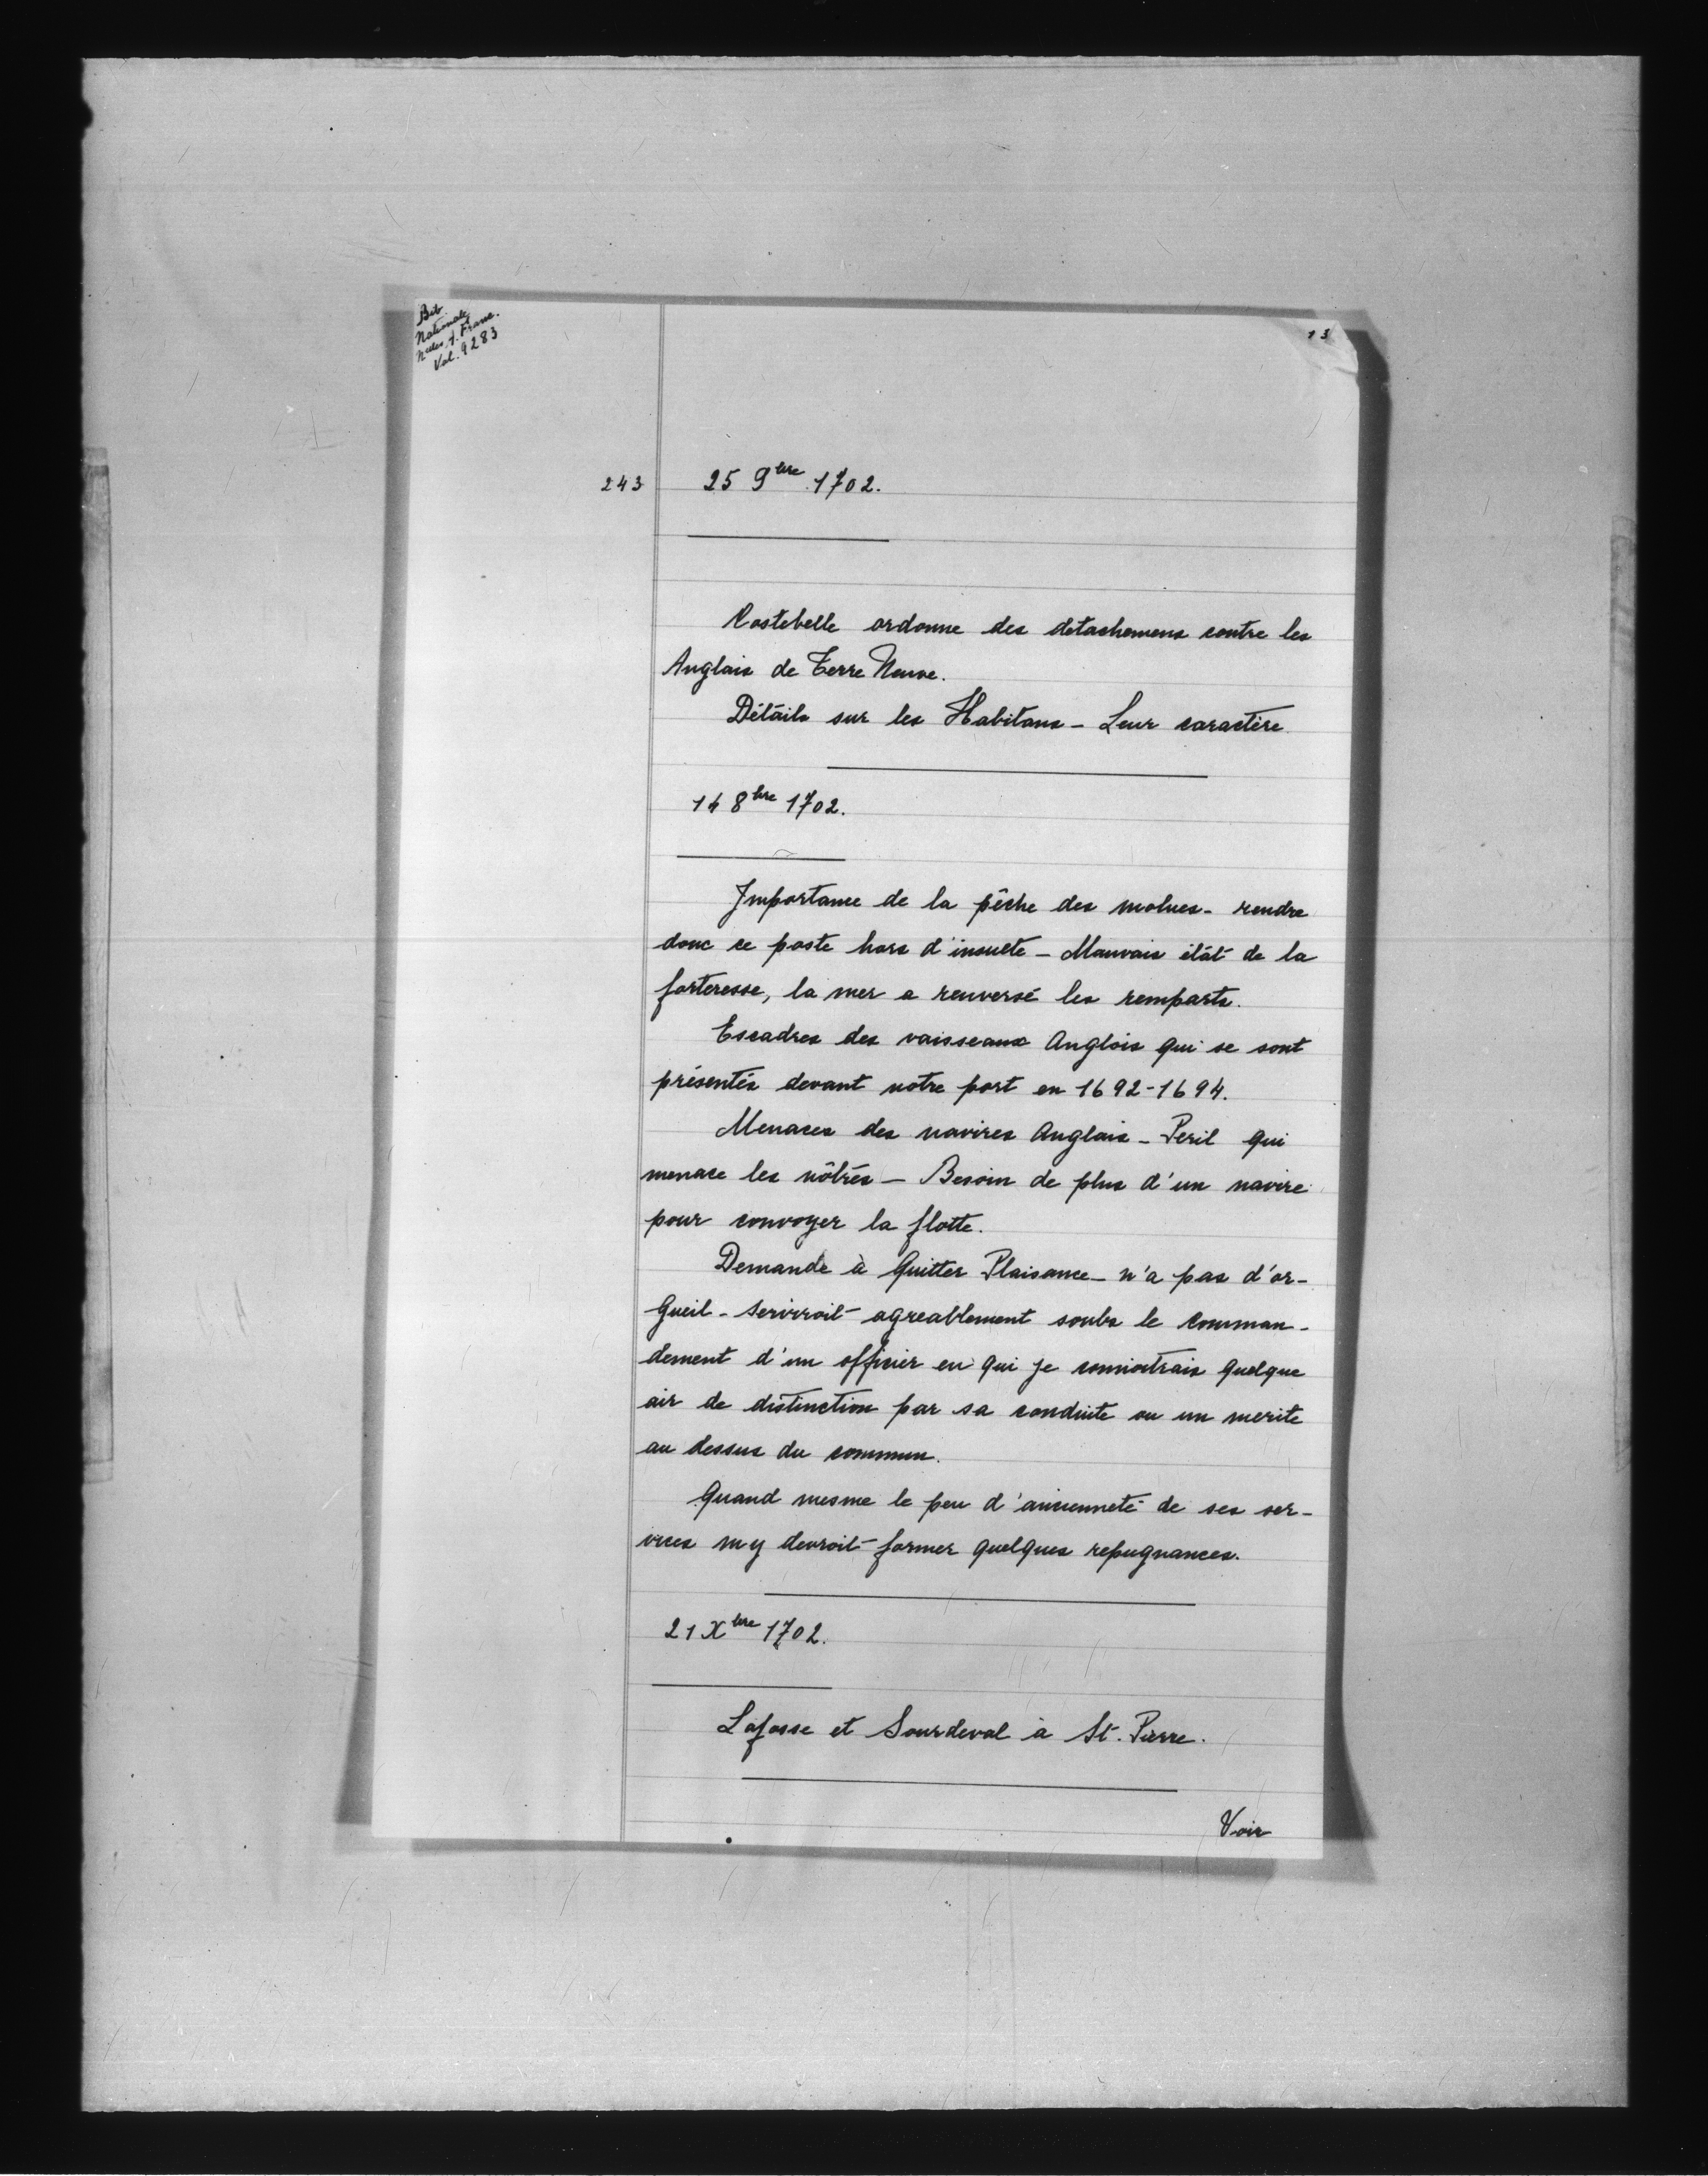 Bib
Nationale
Nelles A. Franc.
Vol. 9283
13
243
25 9bre 1702.
Costebelle ordonne des detachemens contre les
Anglais de Terre Neuve.
Détails sur les Habitans - Leur caractère
14 8bre 1702.
Importance de la pêche des molues - rendre
donc ce poste hors d'insulte - Mauvais état de la
forteresse, la mer a renversé les remparts.
Escadres des vaisseaux Anglois qui se sont
présentés devant notre port en 1692-1694.
Menaces des navires Anglais - Peril qui
menace les nôtres - Besoin de plus d'un navire
pour convoyer la flotte.
Demande à Quitter Plaisance - n'a pas d'or-
gueil - Serviroit agreablement soubs le comman-
dement d'un officier en qui je connoitrais quelque
air de distinction par sa conduite ou un merite
au dessus du commun.
Quand mesme le peu d'ancienneté de ses ser-
vices m y devroit former quelques repugnances.
21 Xbre 1702.
Lafosse et Sourdeval à St. Pierre.
Voir